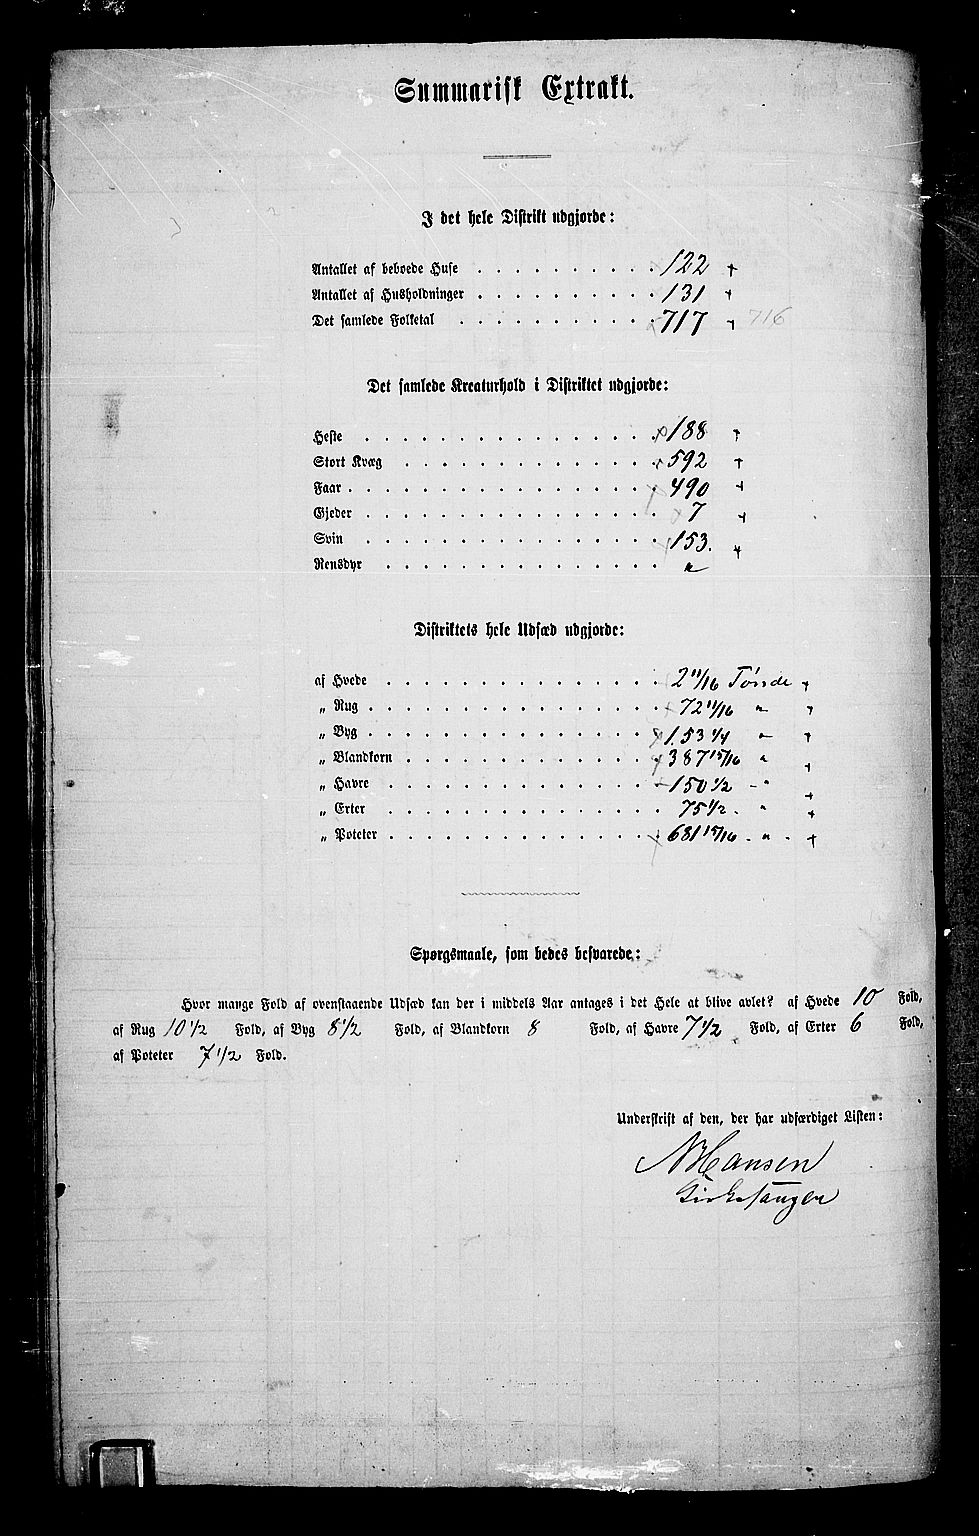 Summarisk Extrakt.
I det hele Distrikt udgjorde:
Antallet af beboede Huse . . . . . . . . . . 122
Antallet af Husholdninger . . . . . . . . . . 131
Det samlede Folketal . . . . . . . . . . . 717 716
Det samlede Kreaturhold i Distriktet udgjorde:
Heste . . . . . . . . . . . . . . . . 188
Stort Kvæg . . . . . . . . . . . . . . 592
Faar . . . . . . . . . . . . . . . . . 490
Gjeder . . . . . . . . . . . . . . . . 7
Svin . . . . . . . . . . . . . . . . 153.
Rensdyr . . . . . . . . . . . . . . . "
Distriktets hele Udsæd udgjorde:
af Hvede . . . . . . . . . . . . . . . 2 11/16 Tønde
„ Rug . . . . . . . . . . . . . . . . 72 11/16 "
„ Byg . . . . . . . . . . . . . . . . 153 1/4 "
„ Blandkorn . . . . . . . . . . . . . 387 15/16 "
„ Havre . . . . . . . . . . . . . . . 150 1/2 - "
„ Erter . . . . . . . . . . . . . . . 75 1/2 - "
„ Poteter . . . . . . . . . . . . . . 681 15/16 - " -
Spørgsmaale, som bedes besvarede:
Hvor mange Fold af ovenstaaende Udsæd kan der i middels Aar antages i det Hele at blive avlet? af Hvede 10 Fold,
af Rug 10 1/2 Fold, af Byg 8 1/2 Fold, af Blandkorn 8 Fold, af Havre 7 1/2 Fold, af Erter 6 Fold,
af Poteter 7 1/2 Fold.
Underskrift af den, der har udfærdiget Listen:
N Hansen
Kirkesanger